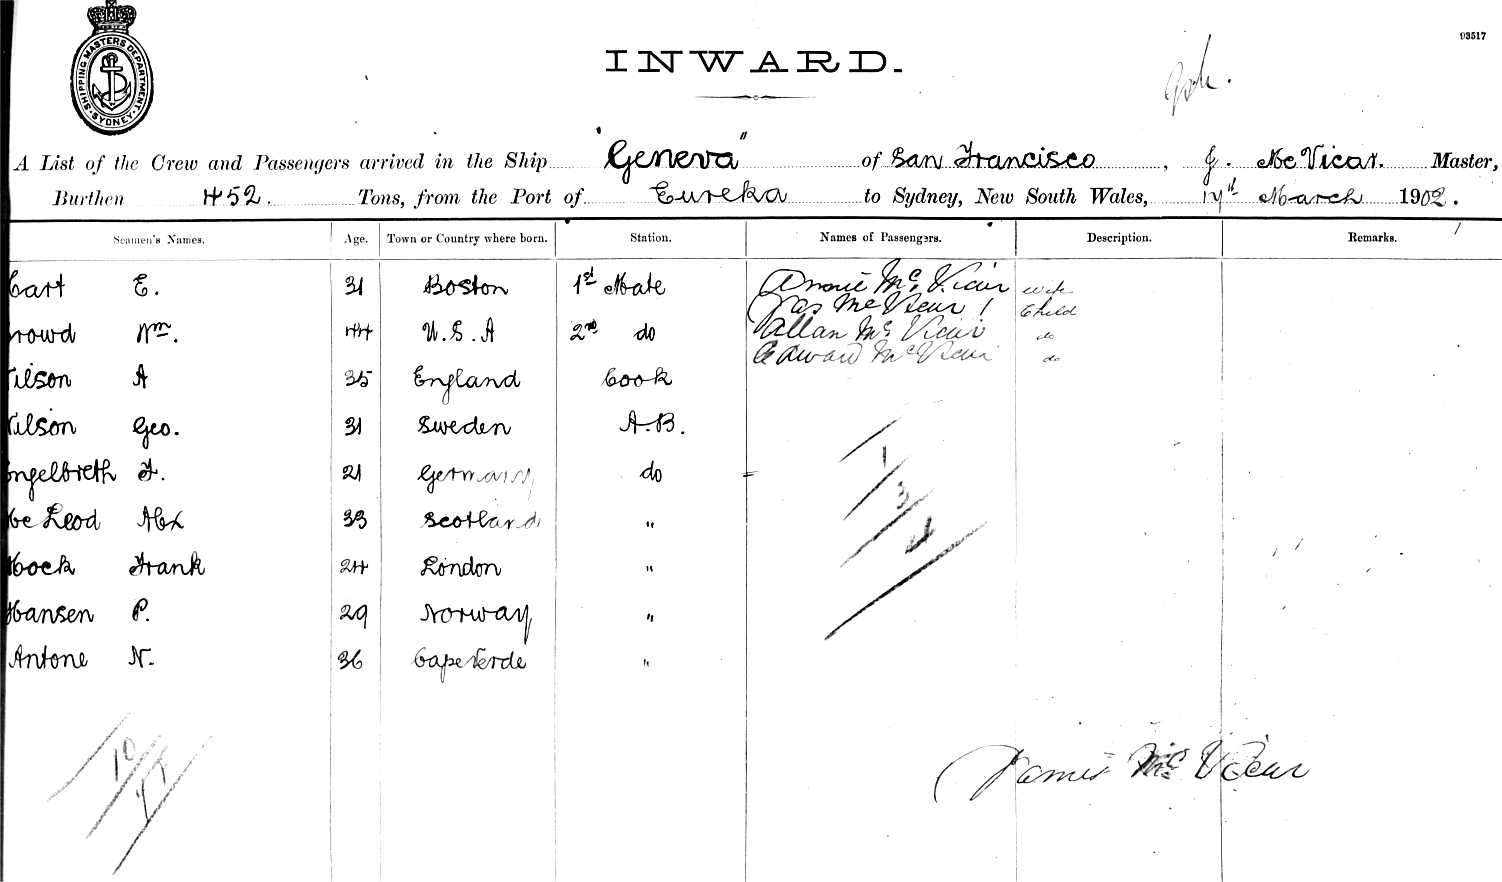 SHIPPING MASTERS DEPARTMENT
SYDNEY
93517
INWARD.
A List of the Crew and Passengers arrived in the Ship "Geneva" of San Francisco, J. McVicar. Master,
Burthen 452. Tons, from the Port of Eureka to Sydney, New South Wales, 17th March 1902.
Seamen's Names. Age. Town or Country where born. Station. Names of Passengers. Description. Remarks.
Cart E. 31 Boston 1st Mate Annie McVicar wife
Jas McVicar 1 Child
rowd Wm. 44 U.S.A 2nd do Allan McVicar do
Edward McVicar do
ilson A 35 England Cook
ilson Geo. 31 Sweden A.B.
Engelbreth F. 21 Germany do
McLeod Alex 33 Scotland "
Mock Frank 24 London "
Hansen P. 29 Norway "
Antone N. 36 Cape Verde "
1
3
4
10
James McVicar